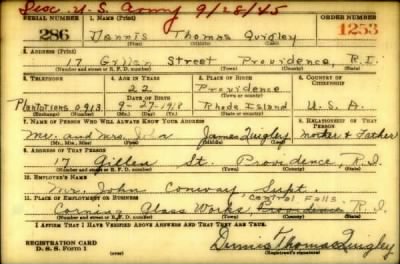 Disc. U.S. Army 9/28/45
SERIAL NUMBER 1. NAME (Print) ORDER NUMBER
286 Dennis Thomas Quigley 1253
(First) (Middle) (Last)
2. ADDRESS (Print)
17 Gillen Street Providence, R.I.
(Number and street or R. F. D. number) (Town) (County) (State)
3. TELEPHONE 4. AGE IN YEARS 5. PLACE OF BIRTH 6. COUNTRY OF CITIZENSHIP
22 Providence
DATE OF BIRTH (Town or county)
Plantations 0913 9-27-1918 Rhode Island U.S.A.
(Exchange) (Number) (Mo.) (Day) (Yr.) (State or country)
7. NAME OF PERSON WHO WILL ALWAYS KNOW YOUR ADDRESS 8. RELATIONSHIP OF THAT PERSON
Mr. and Mrs. James Quigley Mother & Father
(Mr., Mrs., Miss) (First) (Middle) (Last)
9. ADDRESS OF THAT PERSON
17 Gillen St. Providence, R.I.
(Number and street or R. F. D. number) (Town) (County) (State)
10. EMPLOYER'S NAME
Mr. John Conway Supt.
11. PLACE OF EMPLOYMENT OR BUSINESS Central Falls
Corning Glass Works, Providence R.I.
(Number and street or R. F. D. number) (Town) (County) (State)
I AFFIRM THAT I HAVE VERIFIED ABOVE ANSWERS AND THAT THEY ARE TRUE.
REGISTRATION CARD
D. S. S. Form 1 Dennis Thomas Quigley
(Registrant's signature)